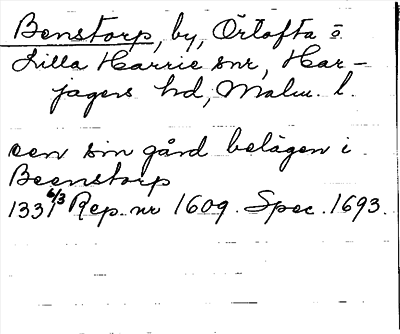 Benstorp, by, Örtofta o
Lilla Harrie snr, Har-
jagers hd, Malm. l.
een sin gård belägen i
Beenstorp
1331 6/3 Rep. nr 1609. Spec. 1693.